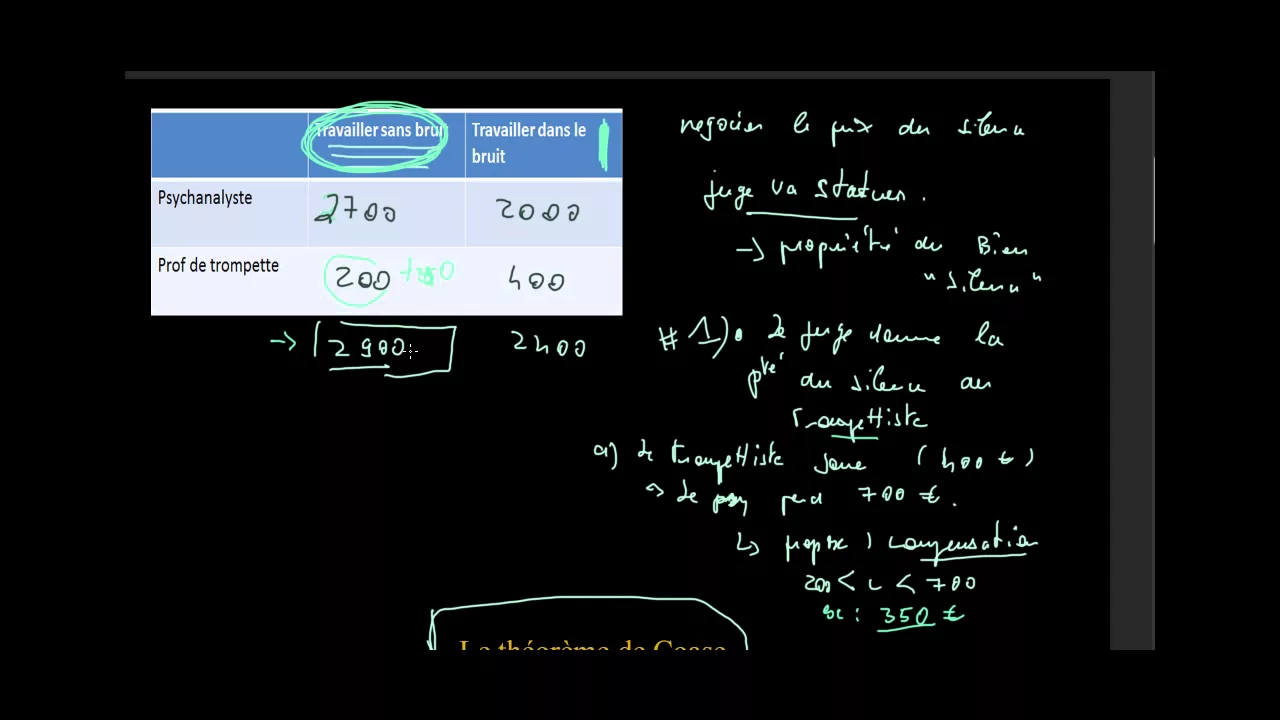 Travailler sans bruit
Travailler dans le
bruit
Psychanalyste
2700
2000
Prof de trompette
200
400
→ 2900
2400
negocier le prix du silence
juge va statuer.
→ propriété du Bien
"silence"
# 1) • Le juge donne la
pté du silence au
Trompettiste
a) Le trompettiste joue (400 €)
⇒ Le psy perd 700 €.
↳ propose 1 compensation
200 < c < 700
sc : 350 €
Le théorème de Coase